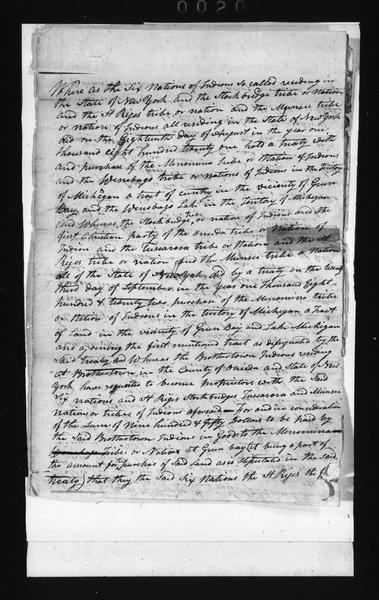 0020
Where as the Six Nations of Indians So called residing in
the State of New York and the Stockbridge tribe or Nation
and the St Regis tribe or nation and the Munsee tribe
or nation of Indians all residing in the State of New York
did on the Eighteenth day of August in the year one
thousand eight hundred twenty one hold a treaty with
and purchase of the Menominie tribe or Nation of Indians
and the Winebago tribe or nations of Indians in the territory
of Michigan a tract of cuntry in the vicinity of Green
Bay and the Winebago Lake in the territory of Michigan
and Whereas the Stockbridge tribe or nation of Indians and the
first Christian party of the oneida tribe or Nation of
Indian and the tuscarora tribe or Nation and the St
Regis tribe or nation and the Munsee tribe or nation
all of the State of New York did by a treaty on the twenty
third day of September in the Year one thousand Eight
hundred & twenty two purchase of the Menominie tribe
or Nation of Indians in the territory of Michigan a tract
of Land in the vicinity of Green Bay and Lake Michigan
and adjoining the first mentioned tract as designated by the
Said Treaty and Whereas the Brothertown Indians residing
at Brothertown in the County of Oneida and State of New
York have requested to become proprietors with the Said
Six nations and St Regis Stockbridges Tuscarora and Munsee
nations or tribes of Indians aforesaid for and in consideration
of the Sum of Nine hundred & fifty Dollars to be paid by
the Said Brothertown Indians in Goods to the Menominie
tribe or Nation at Green bay (it being a part of
the amount for the purchase of Said Land as is stipulated in the Said
treaty) that they the Said Six Nations the St Regis the